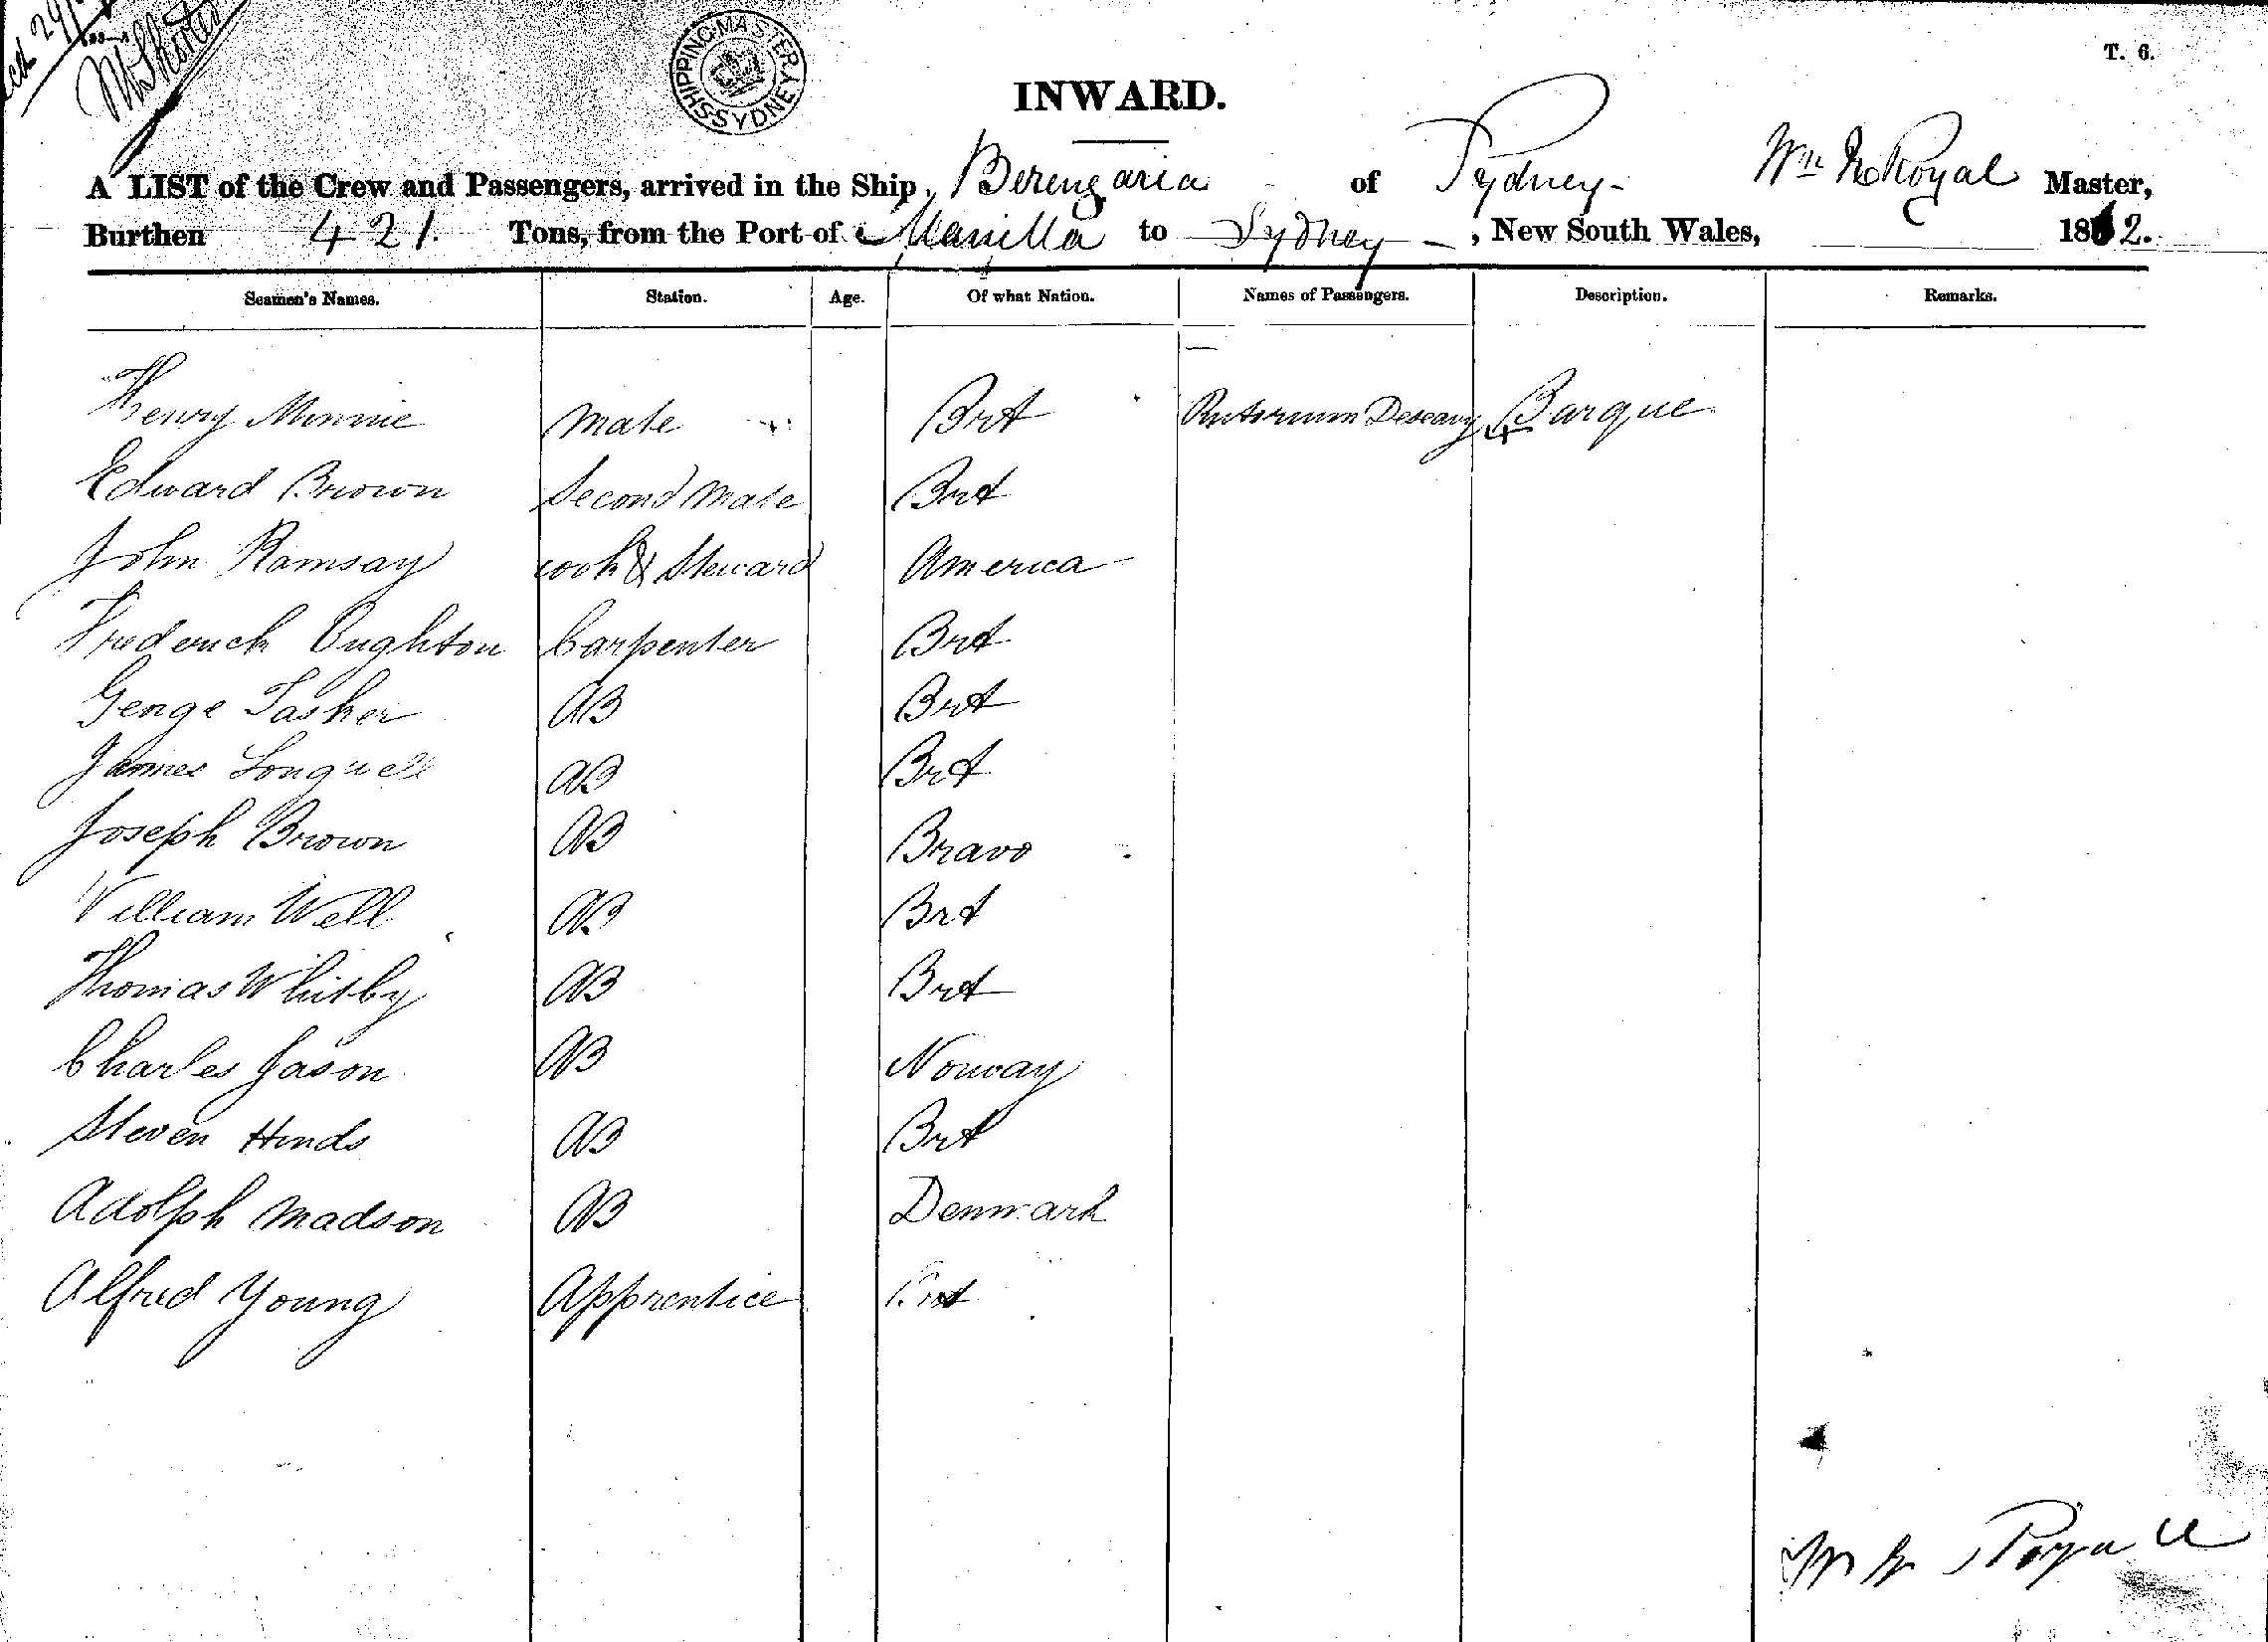 SHIPPING MASTER SYDNEY
T. 6.
INWARD.
A LIST of the Crew and Passengers, arrived in the Ship, Berengaria of Sydney Wm Royal Master,
Burthen 421 Tons, from the Port of Manilla to Sydney, New South Wales, 1882.
Seamen's Names. Station. Age. Of what Nation. Names of Passengers. Description. Remarks.
Henry Minnie Mate Brt Barque
Edward Brown Second Mate Brt
John Ramsay Cook & Steward America
Frederick Oughton Carpenter Brt
George Tasher AB Brt
James Longwell AB Brt
Joseph Brown AB Bravo
William Well AB Brt
Thomas Whitby AB Brt
Charles Jason AB Norway
Steven Hinds AB Brt
Adolph Madson AB Denmark
Alfred Young Apprentice Brt
Royall